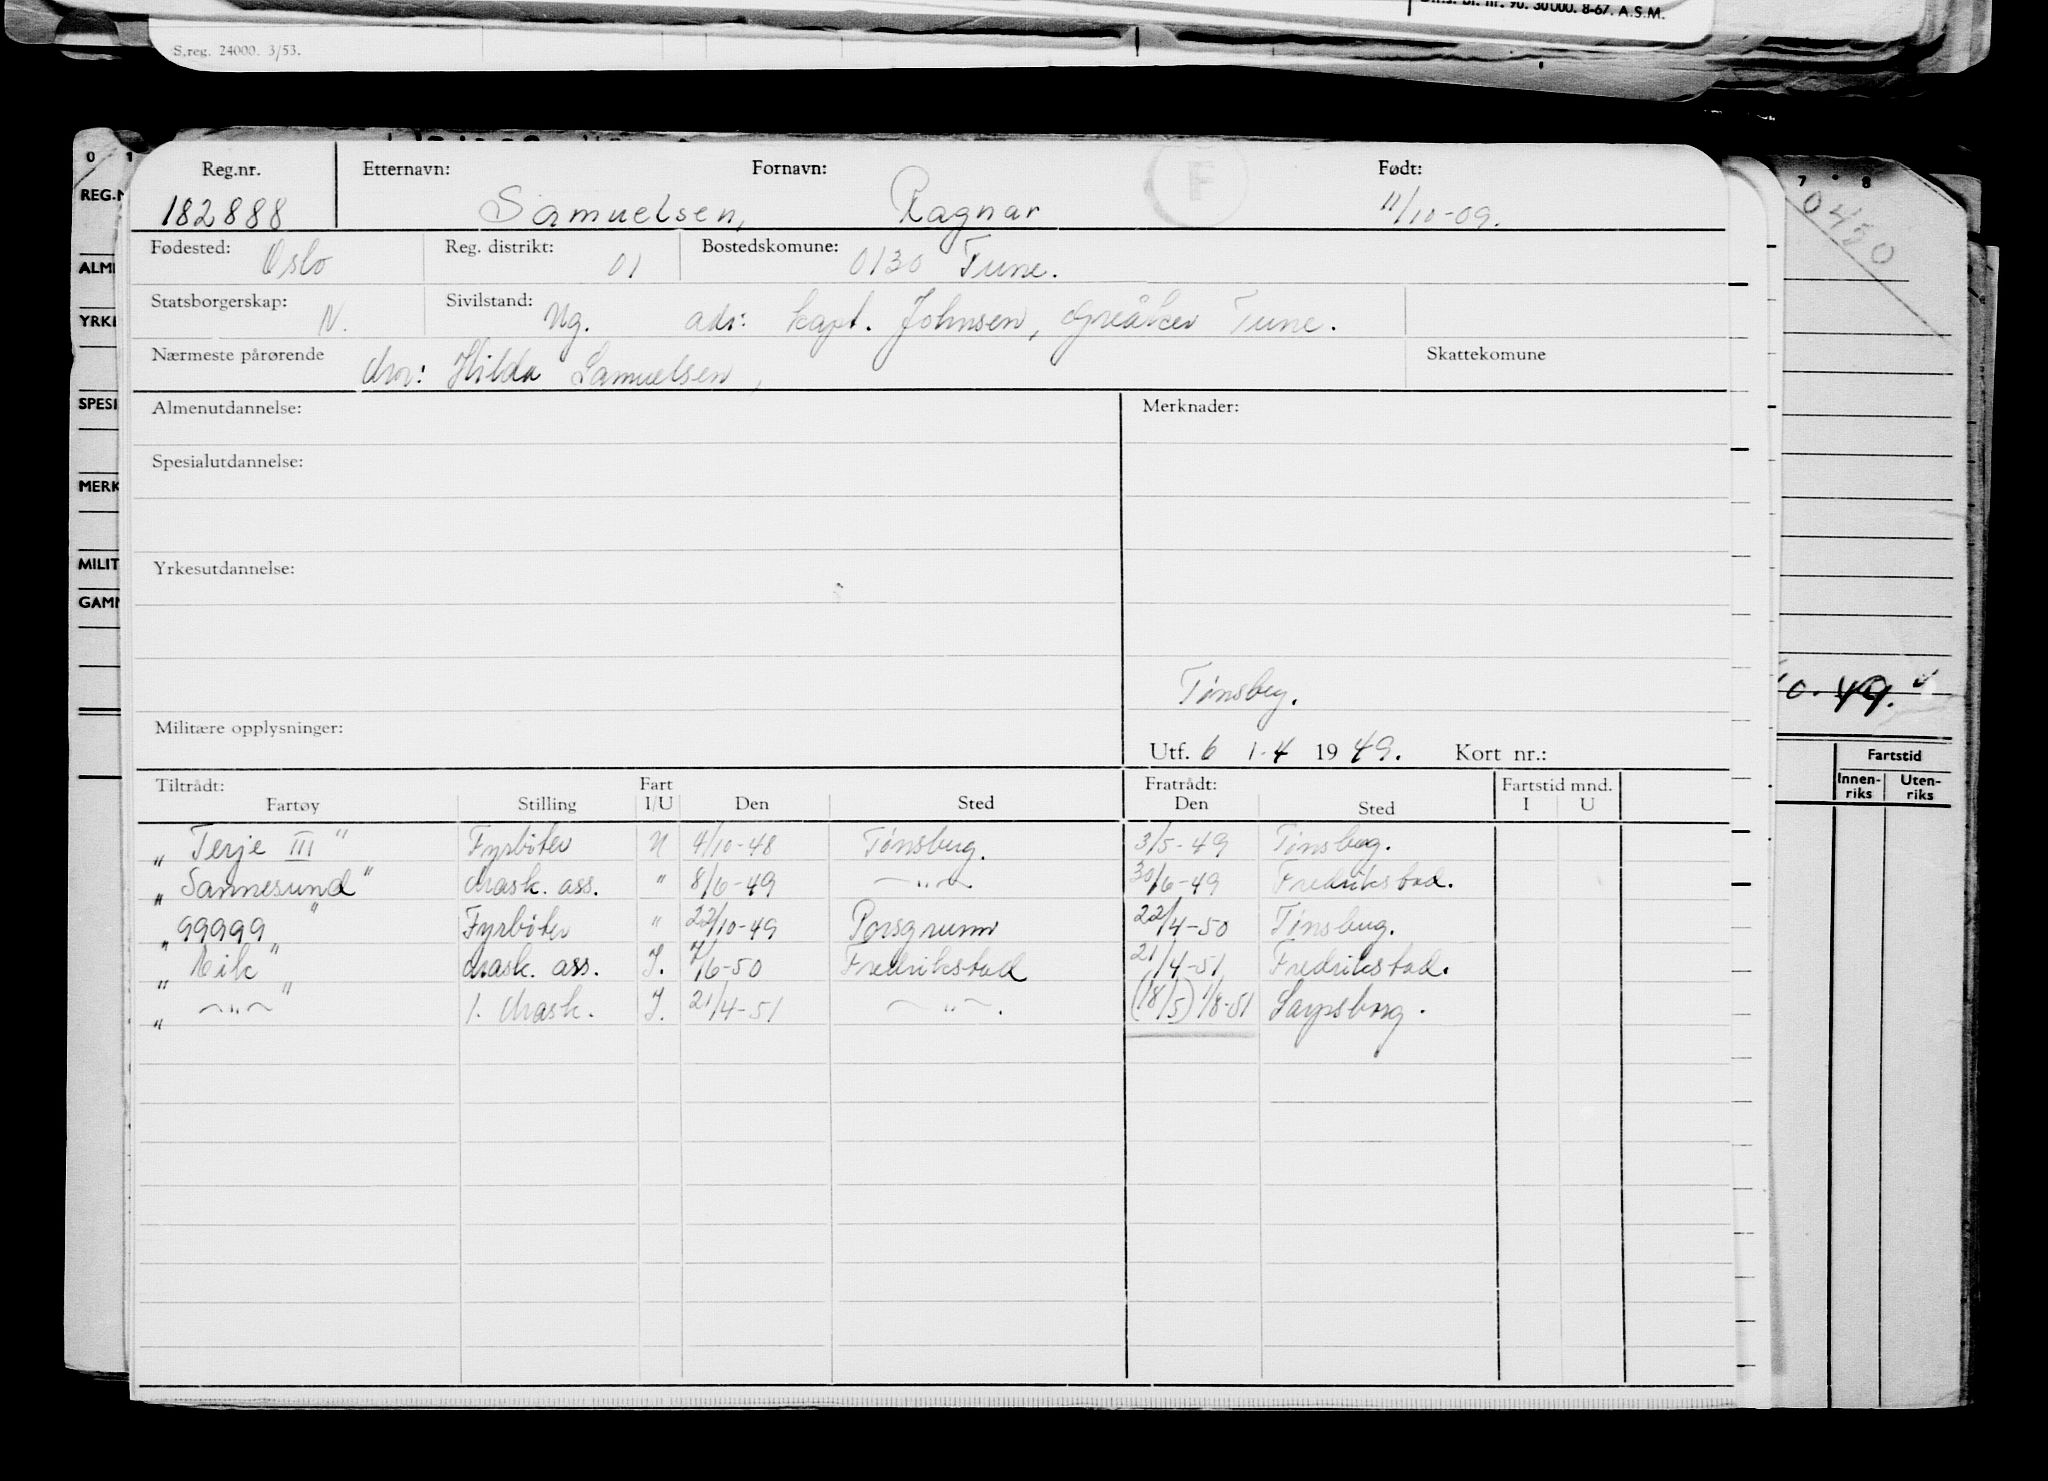 Dirs. bl. nr. 90. 30000. 8-67. A.S.M.
S.reg. 24000. 3/53.
0 1
7 8
REG.N
0420
Reg.nr. Etternavn: Fornavn: F Født:
182888 Samuelsen, Ragnar 11/10-09.
Fødested: Oslo Reg. distrikt: 01 Bostedskomune: 0130 Tune.
ALM
Statsborgerskap: N. Sivilstand: Ug. adr: kapt. Johnsen, Greåker Tune.
YRKE
Nærmeste pårørende Mor: Hilda Samuelsen, Skattekomune
SPESI
Almenutdannelse: Merknader:
Spesialutdannelse:
MERK
MILIT
Yrkesutdannelse:
GAMM
Tønsberg.
10. 49.
Militære opplysninger:
Utf. 6 1-4 1949. Kort nr.:
Fartstid
Innen-riks Uten-riks
Tiltrådt: Fart Fratrådt: Fartstid mnd.
Fartøy Stilling I/U Den Sted Den Sted I U
" Terje III " Fyrbøter U 4/10-48 Tønsberg. 3/5-49 Tønsberg.
" Sannesund " Mask. ass. " 8/6-49 —"— 30/6-49 Fredrikstad.
" 99999 " Fyrbøter " 22/10-49 Porsgrunn 22/4-50 Tønsberg.
" Eik " Mask. ass. I. 7/6-50 Fredrikstad 21/4-51 Fredrikstad.
" —"— " 1. Mask. I. 21/4-51 —"—. (18/5) 1/8-51 Sarpsborg.